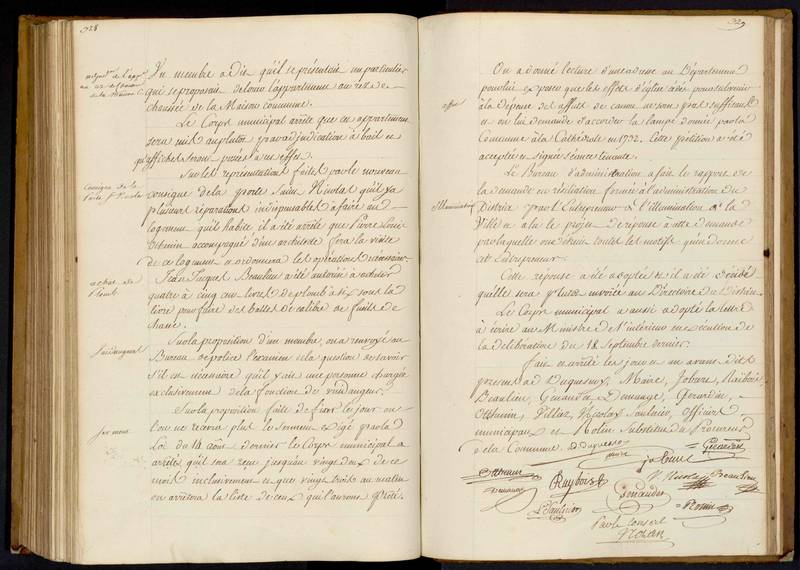 328
Un membre a dit qu'il se présentoit un particulier
qui se proposoit de louer l'appartement au rez de
chaussée de la Maison commune.
Le Corps municipal arrête que cet appartement
sera mis au plutot par adjudication à bail et
qu'affiches seront posées à cet effet.
Consigne de la
Porte St Nicolas
Sur les représentations faites par le nouveau
consigne de la porte Saint Nicolas qu'il y a
plusieurs réparations indispensables à faire au
logement qu'il habite il a été arrêté que Pierre Louis
Othenin accompagné d'un architecte fera la visite
de ce logement et ordonnera les opérations nécessaires.
achat de
Plomb
Jean Jacques Beaulieu a été autorisé à acheter
quatre à cinq cens livres de plomb à six sous la
livre pour faire des balles de calibre de fusils de
chasse.
Vendangeur
Sur la proposition d'un membre, on a renvoyé au
Bureau de police l'examen de la question de savoir
s'il est nécessaire qu'il y ait une personne chargée
exclusivement de la fonction de vendangeur.
Serment
Sur la proposition faite de fixer les jour où
l'on ne recevra plus le serment exigé par la
Loi du 14 août dernier le Corps municipal a
arrêté qu'il sera reçu jusqu'au vingt deux de ce
mois exclusivement et que vingt trois au matin
on arrêtera la liste de ceux qui l'auront prêté.
329
On a donné lecture d'une adresse au Département
pour lui exposer que les effets d'église cédés pour subvenir
effets
à la dépense des affuts de canon ne sont pas suffisans
et on lui demande d'accorder la lampe donnée par la
Commune à la Cathédrale en 1722. Cette pétition a été
acceptée et signée séance tenante.
Le Bureau d'administration a fait le rapport de
la demande en résiliation formée à l'administration du
Illumination
District par l'Entrepreneur de l'illumination de la
Ville et a lu le projet de réponse à cette demande
par laquelle on détruit toutes les motifs qu'en donne
cet Entrepreneur.
Cette réponse a été adoptée et il a été décidé
qu'elle sera envoiée au Directoire du District.
Le Corps municipal a aussi adopté la lettre
à écrire au Ministre de l'intérieur en exécution de
la délibération du 18 Septembre dernier.
Fait et arrêté les jour et an avant dits
présens Duquesnoy, Maire, Jobart, Raibois,
Beaulieu, Genaudet, Demange, Gerardin,
Othenin, Villiez, Nicolas, Saulnier, Officiers
municipaux et Rolin Substitut du Procureur
de la Commune. Duquesnoy
maire
Gerardin
Othenin
Demange
Nicolas
Beaulieu
Genaudet
Par le Conseil